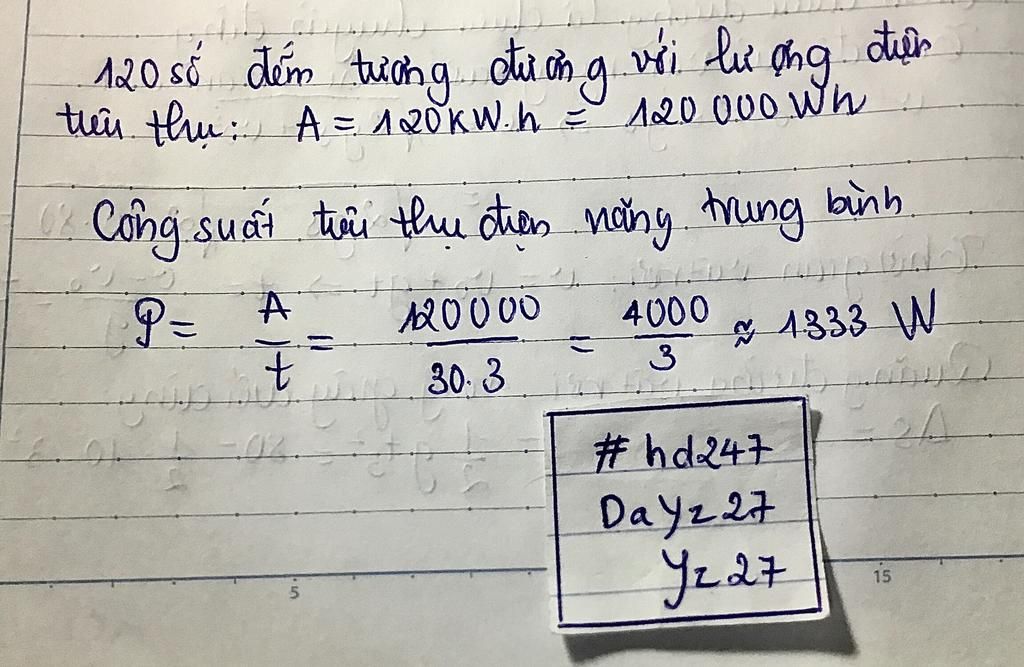 120 số đếm tương đương với lượng điện
tiêu thụ: A = 120KW.h = 120 000 Wh
Công suất tiêu thụ điện năng trung bình
𝒫 = A/t = 120000/30.3 = 4000/3 ≈ 1333 W
# hd247
DaYz27
Yz27
5
15